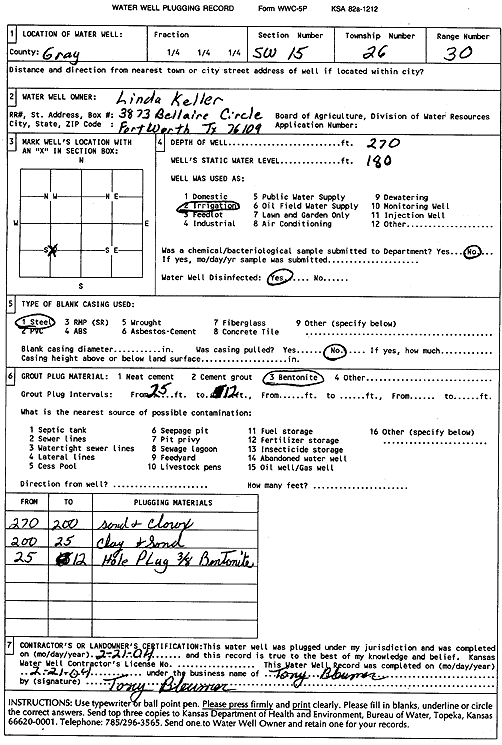 WATER WELL PLUGGING RECORD Form WWC-5P KSA 82a-1212
1 LOCATION OF WATER WELL: Fraction Section Number Township Number Range Number
County: Gray 1/4 1/4 1/4 SW 15 26 30
Distance and direction from nearest town or city street address of well if located within city?
2 WATER WELL OWNER: Linda Keller
RR#, St. Address, Box #: 3873 Bellaire Circle Board of Agriculture, Division of Water Resources
City, State, ZIP Code : Fort Worth Tx 76109 Application Number:
3 MARK WELL'S LOCATION WITH AN "X" IN SECTION BOX:
N
N W N E
W E
S W S E
S
4 DEPTH OF WELL..........270..........ft.
WELL'S STATIC WATER LEVEL..........180..........ft.
WELL WAS USED AS:
1 Domestic 5 Public Water Supply 9 Dewatering
2 Irrigation 6 Oil Field Water Supply 10 Monitoring Well
3 Feedlot 7 Lawn and Garden Only 11 Injection Well
4 Industrial 8 Air Conditioning 12 Other...........
Was a chemical/bacteriological sample submitted to Department? Yes...No...
If yes, mo/day/yr sample was submitted................
Water Well Disinfected: Yes.... No......
5 TYPE OF BLANK CASING USED:
1 Steel 3 RMP (SR) 5 Wrought 7 Fiberglass 9 Other (specify below)
2 PVC 4 ABS 6 Asbestos-Cement 8 Concrete Tile ......................
Blank casing diameter..........in. Was casing pulled? Yes..... No..... If yes, how much..........
Casing height above or below land surface......................in.
6 GROUT PLUG MATERIAL: 1 Neat cement 2 Cement grout 3 Bentonite 4 Other...................
Grout Plug Intervals: From 25 ft. to 12 ft., From......ft. to ......ft., From...... to ......ft.
What is the nearest source of possible contamination:
1 Septic tank 6 Seepage pit 11 Fuel storage 16 Other (specify below)
2 Sewer lines 7 Pit privy 12 Fertilizer storage ......................
3 Watertight sewer lines 8 Sewage lagoon 13 Insecticide storage
4 Lateral lines 9 Feedyard 14 Abandoned water well
5 Cess Pool 10 Livestock pens 15 Oil well/Gas well
Direction from well? .................... How many feet? ....................
FROM TO PLUGGING MATERIALS
270 200 Sand &
200 25 Clay & Sand
25 12 Hole Plug 3/8 Bentonite
7 CONTRACTOR'S OR LANDOWNER'S CERTIFICATION: This water well was plugged under my jurisdiction and was completed
on (mo/day/year) 2-21-04 and this record is true to the best of my knowledge and belief. Kansas
Water Well Contractor's License No. .............. This Water Well Record was completed on (mo/day/
year) 2-21-04 under the business name of Tony
by (signature) Tony
INSTRUCTIONS: Use typewriter or ball point pen. Please press firmly and print clearly. Please fill in blanks, underline or circle
the correct answers. Send top three copies to Kansas Department of Health and Environment, Bureau of Water, Topeka, Kansas
66620-0001. Telephone: 785/296-3565. Send one to Water Well Owner and retain one for your records.